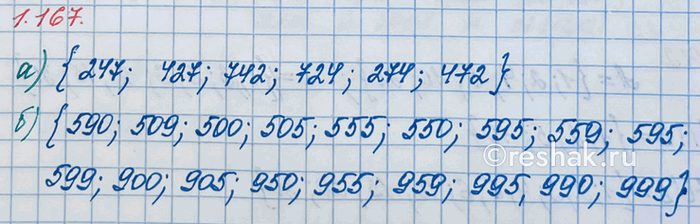 1.167.
а) { 247; 427; 742; 724; 274; 472}
б) {590; 509; 500; 505; 555; 550; 595; 559; 595;
599; 900; 905; 950; 955; 959; 995, 990; 999}
©reshak.ru